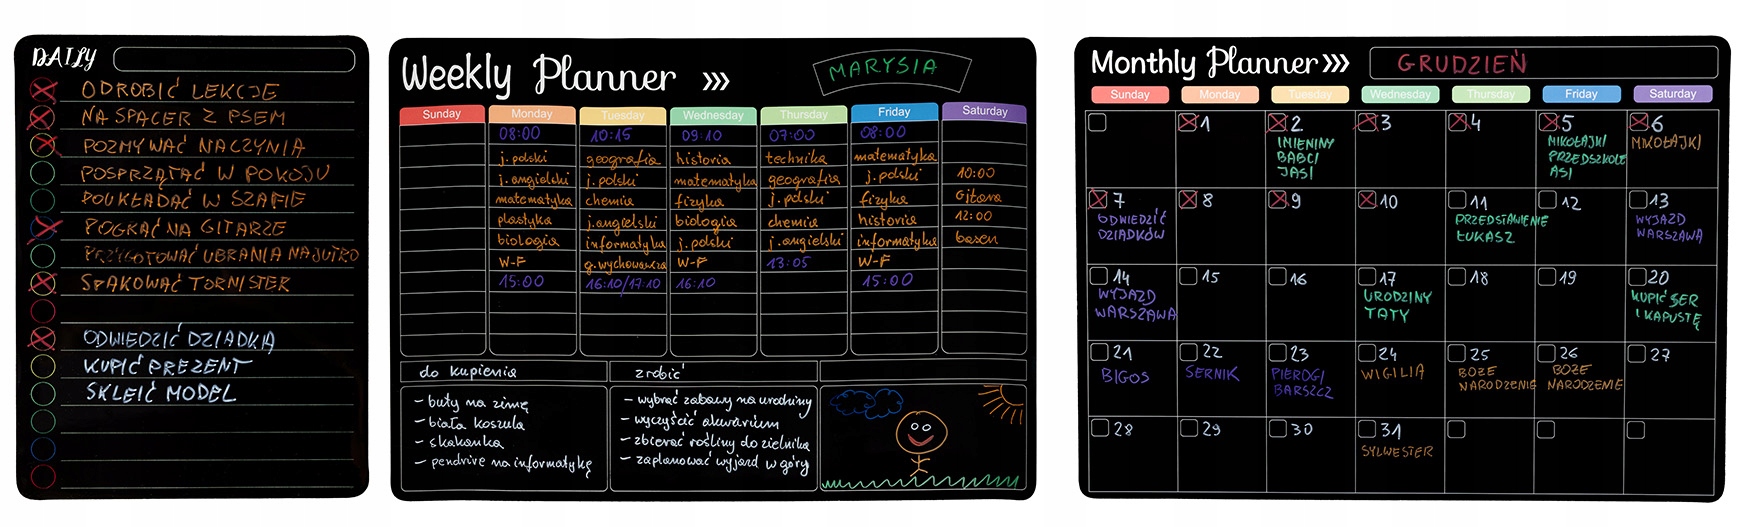 DAILY
ODROBIĆ LEKCJE
NA SPACER Z PSEM
POZMYWAĆ NACZYNIA
POSPRZĄTAĆ W POKOJU
POUKŁADAĆ W SZAFIE
POGRAĆ NA GITARZE
PRZYGOTOWAĆ UBRANIA NA JUTRO
SPAKOWAĆ TORNISTER
ODWIEDZIĆ DZIADKA
KUPIĆ PREZENT
SKLEIĆ MODEL
Weekly Planner >>> MARYSIA
Sunday Monday Tuesday Wednesday Thursday Friday Saturday
08:00 10:15 09:10 07:00 08:00
j. polski geografia historia technika matematyka
j. angielski j. polski matematyka geografia j. polski 10:00
matematyka chemia fizyka j. polski fizyka Gitara
plastyka j. angielski biologia chemia historia 12:00
biologia informatyka j. polski j. angielski informatyka basen
W-F g. wychowawcza W-F 13:05 W-F
15:00 16:10/17:10 16:10 15:00
do kupienia
- buty na zimę
- biała koszula
- skakanka
- pendrive na informatykę
zrobić
- wybrać zabawy na urodziny
- wyczyścić akwarium
- zbierać rośliny do zielnika
- zaplanować wyjazd w góry
Monthly Planner >>> GRUDZIEŃ
Sunday Monday Tuesday Wednesday Thursday Friday Saturday
1 2 3 4 5 6
IMIENINY BABCI JASI
MIKOŁAJKI PRZEDSZKOLE ASI
MIKOŁAJKI
7 8 9 10 11 12 13
ODWIEDZIĆ DZIADKÓW
PRZEDSTAWIENIE ŁUKASZ
WYJAZD WARSZAWA
14 15 16 17 18 19 20
WYJAZD WARSZAWA
URODZINY TATY
KUPIĆ SER I KAPUSTĘ
21 22 23 24 25 26 27
BIGOS
SERNIK
PIEROGI BARSZCZ
WIGILIA
BOŻE NARODZENIE
BOŻE NARODZENIE
28 29 30 31
SYLWESTER